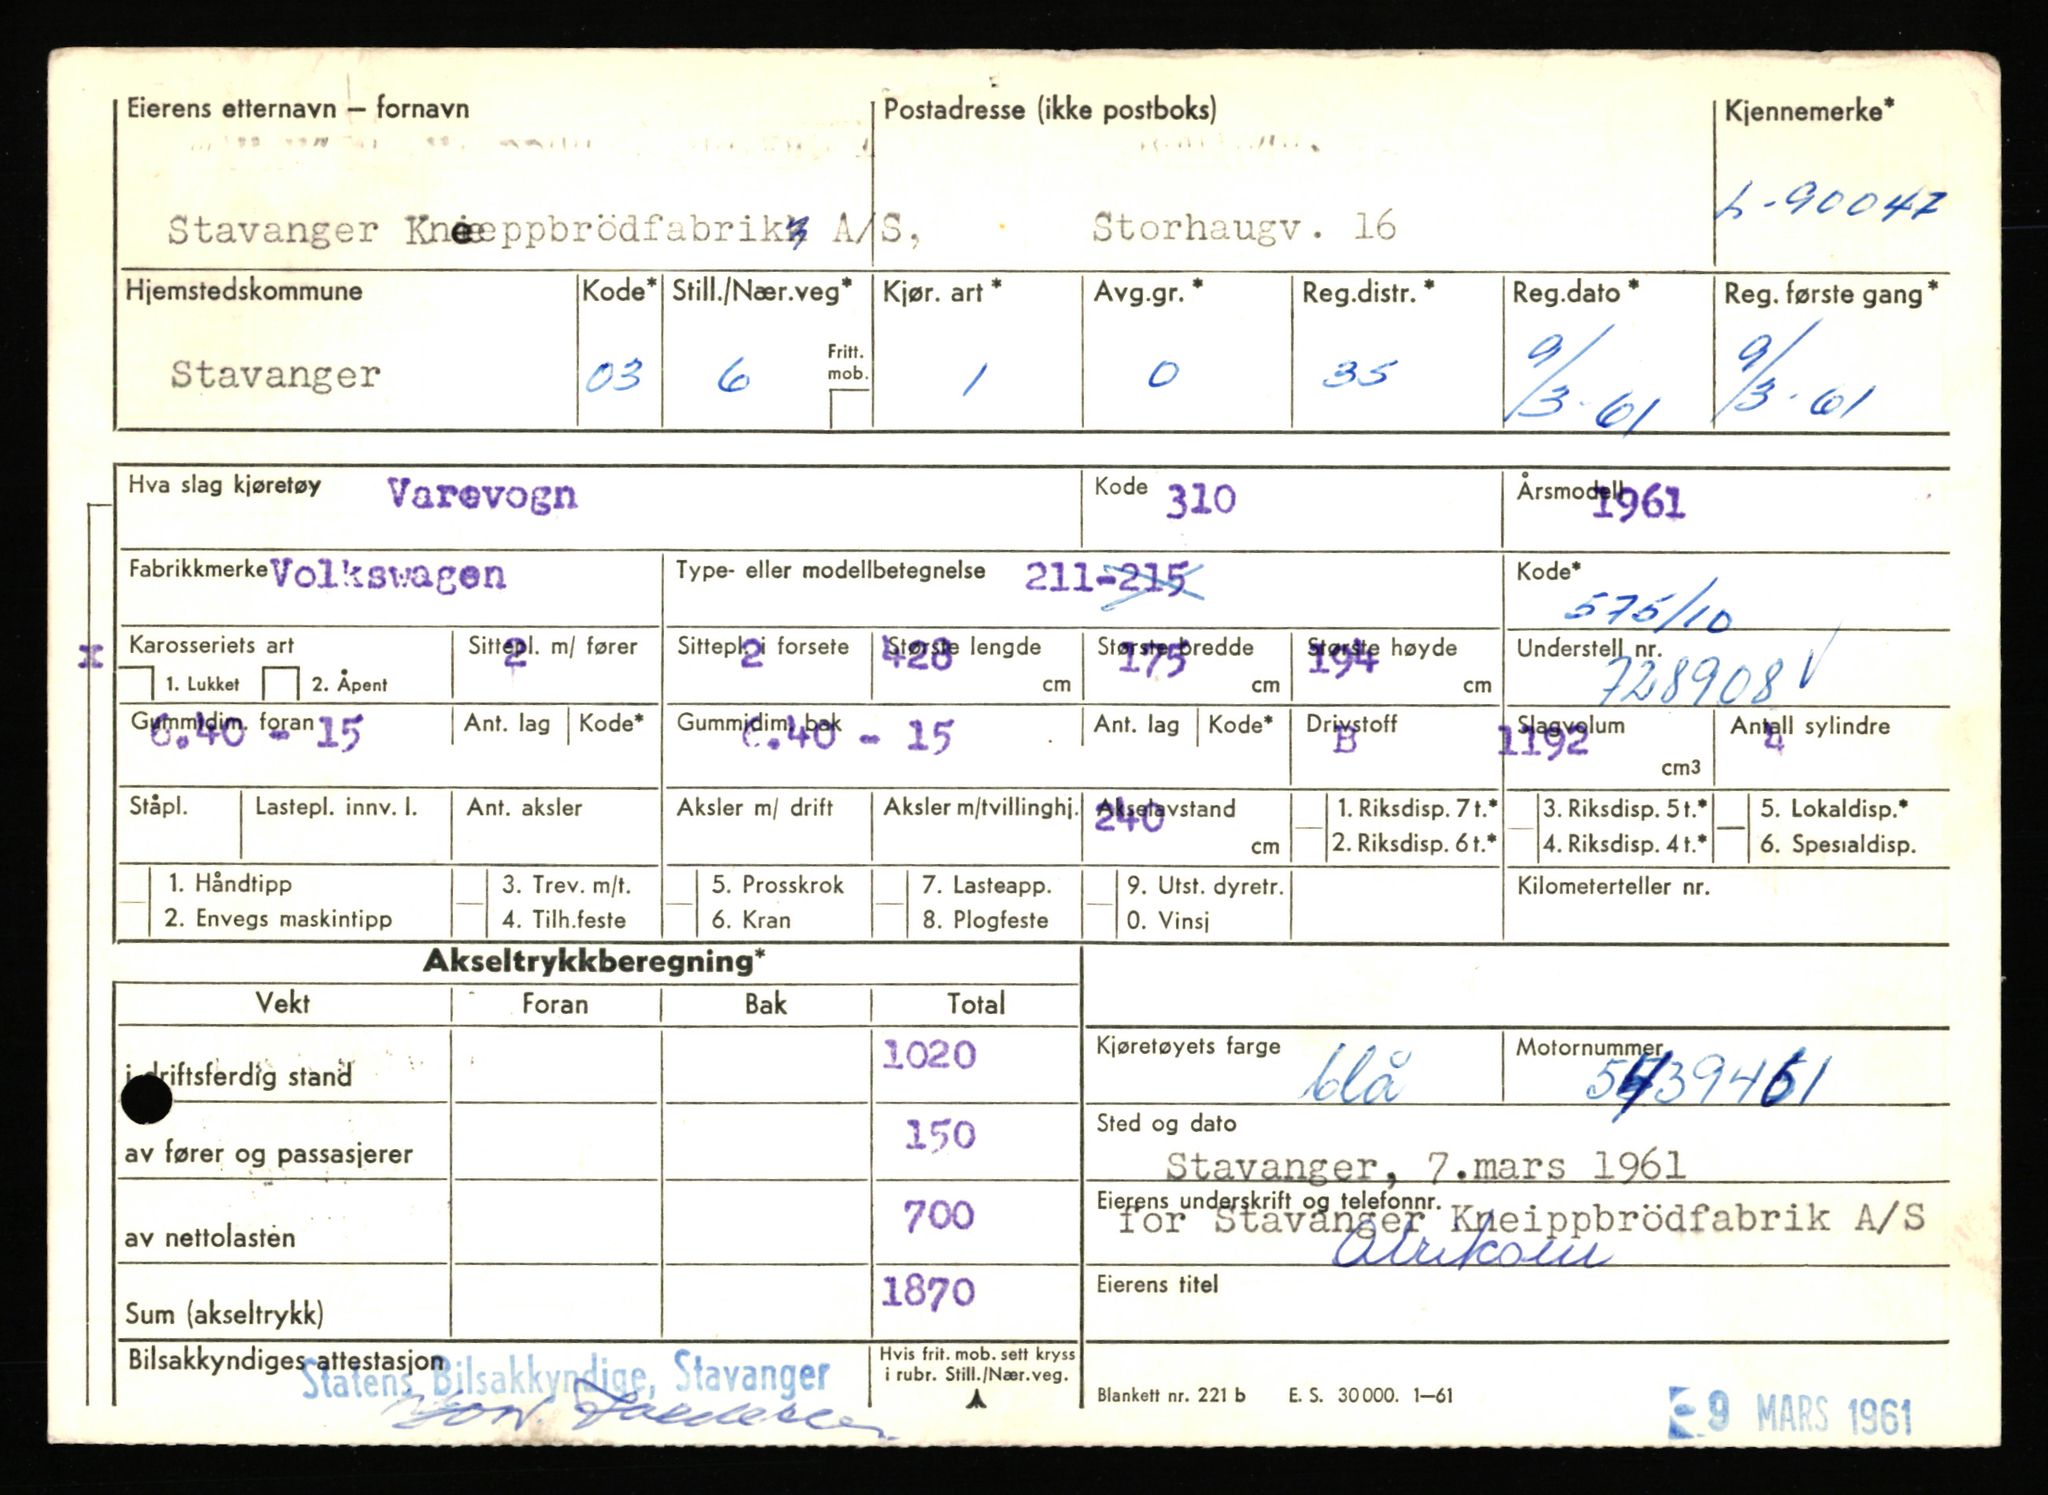 Eierens etternavn – fornavn Postadresse (ikke postboks) Kjennemerke*
Stavanger Kneippbrödfabrikk A/S, Storhaugv. 16 L-90047
Hjemstedskommune Kode* Still./Nær.veg* Kjør. art* Avg.gr.* Reg.distr.* Reg.dato* Reg. første gang*
Fritt. mob.
Stavanger 03 6 1 0 35 9/3-61 9/3-61
Hva slag kjøretøy Varevogn Kode 310 Årsmodell 1961
Fabrikkmerke Volkswagen Type- eller modellbetegnelse 211-215 Kode* 575/10
Karosseriets art Sittepl. m/ fører 2 Sittepl. i forsete 2 Største lengde 428 cm Største bredde 175 cm Største høyde 194 cm Understell nr. 728908
x 1. Lukket 2. Åpent
Gummidim. foran 6.40 - 15 Ant. lag Kode* Gummidim. bak 6.40 - 15 Ant. lag Kode* Drivstoff B Slagvolum 1192 cm3 Antall sylindre 4
Ståpl. Lastepl. innv. l. Ant. aksler Aksler m/ drift Aksler m/tvillinghj. Akselavstand 240 cm 1. Riksdisp. 7 t.* 3. Riksdisp. 5 t.* 5. Lokaldisp.*
2. Riksdisp. 6 t.* 4. Riksdisp. 4 t.* 6. Spesialdisp.
1. Håndtipp 3. Trev. m/t. 5. Prosskrok 7. Lasteapp. 9. Utst. dyretr. Kilometerteller nr.
2. Envegs maskintipp 4. Tilh.feste 6. Kran 8. Plogfeste 0. Vinsj
Akseltrykkberegning*
Vekt Foran Bak Total
i driftsferdig stand 1020
av fører og passasjerer 150
av nettolasten 700
Sum (akseltrykk) 1870
Kjøretøyets farge blå Motornummer
Sted og dato
Stavanger, 7.mars 1961
Eierens underskrift og telefonnr.
for Stavanger Kneippbrödfabrik A/S
Eierens titel
Bilsakkyndiges attestasjon
Statens Bilsakkyndige, Stavanger
Hvis frit. mob. sett kryss
i rubr. Still./Nær.veg.
Blankett nr. 221 b E. S. 30 000. 1–61
9 MARS 1961